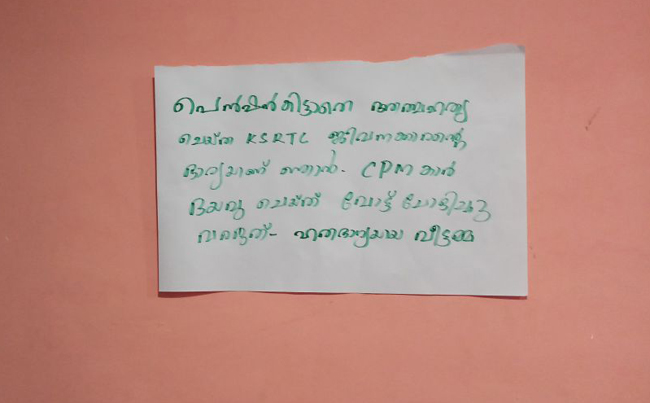 പെൻഷൻകിട്ടാതെ ആത്മഹത്യ
ചെയ്ത KSRTC ജീവനക്കാരന്റെ
ഭാര്യയാണ് ഞാൻ. CPM കാർ
ദയവു ചെയ്ത് വോട്ട് ചോദിച്ചു
വരരുത്- ഹതഭാഗ്യയായ വീട്ടമ്മ